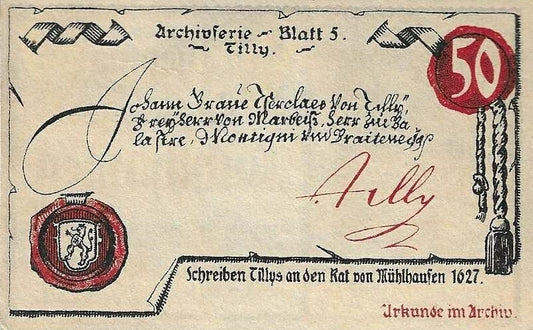 Archivserie - Blatt 5.
Tilly.
50
Johann Graue Tserclaes von Tilly
Freyherr von Marbeiß, Herr zu Ba
lastre, Montigni und Braitenegg
Tilly
Schreiben Tillys an den Rat von Mühlhausen 1627.
Urkunde im Archiv.